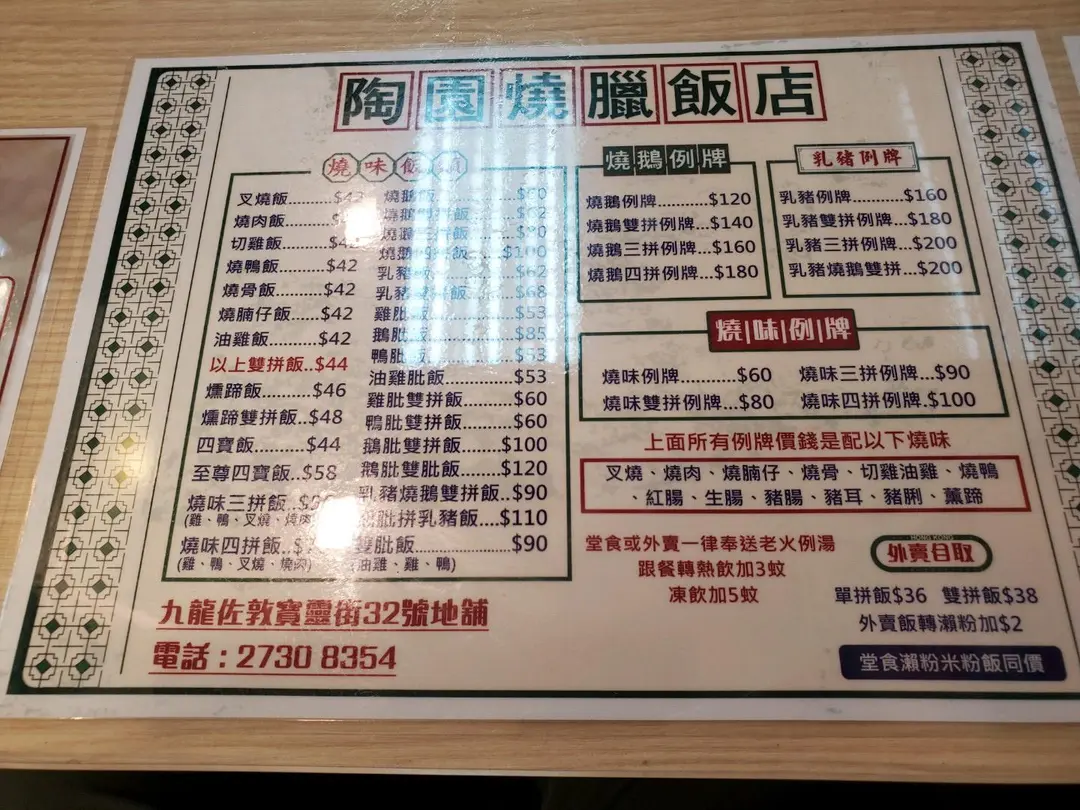 陶園燒臘飯店
燒味飯類
叉燒飯..........$42
燒肉飯
切雞飯
燒鴨飯..........$42
燒骨飯..........$42
燒腩仔飯...$42
油雞飯..........$42
以上雙拼飯..$44
燻蹄飯..........$46
燻蹄雙拼飯...$48
四寶飯..........$44
至尊四寶飯..$58
燒味三拼飯
(雞、鴨、叉燒、燒肉)
燒味四拼飯
(雞、鴨、叉燒、燒肉)
燒鵝飯
$100
乳豬飯
$68
雞肶飯 $53
鵝肶飯 $85
鴨肶飯 $53
油雞肶飯..........$53
雞肶雙拼飯......$60
鴨肶雙拼飯......$60
鵝肶雙拼飯....$100
鵝肶雙肶飯....$120
乳豬燒鵝雙拼飯..$90
肶拼乳豬飯....$110
雙肶飯..................$90
(油雞、雞、鴨)
燒鵝例牌
燒鵝例牌..........$120
燒鵝雙拼例牌...$140
燒鵝三拼例牌...$160
燒鵝四拼例牌...$180
乳豬例牌
乳豬例牌..........$160
乳豬雙拼例牌...$180
乳豬三拼例牌...$200
乳豬燒鵝雙拼...$200
燒|味|例|牌
燒味例牌...........$60
燒味雙拼例牌...$80
燒味三拼例牌...$90
燒味四拼例牌.$100
上面所有例牌價錢是配以下燒味
叉燒、燒肉、燒腩仔、燒骨、切雞油雞、燒鴨
、紅腸、生腸、豬腸、豬耳、豬脷、薰蹄
堂食或外賣一律奉送老火例湯
跟餐轉熱飲加3蚊
凍飲加5蚊
HONG KONG
外賣自取
單拼飯$36 雙拼飯$38
外賣飯轉瀨粉加$2
堂食瀨粉米粉飯同價
九龍佐敦寶靈街32號地舖
電話：2730 8354